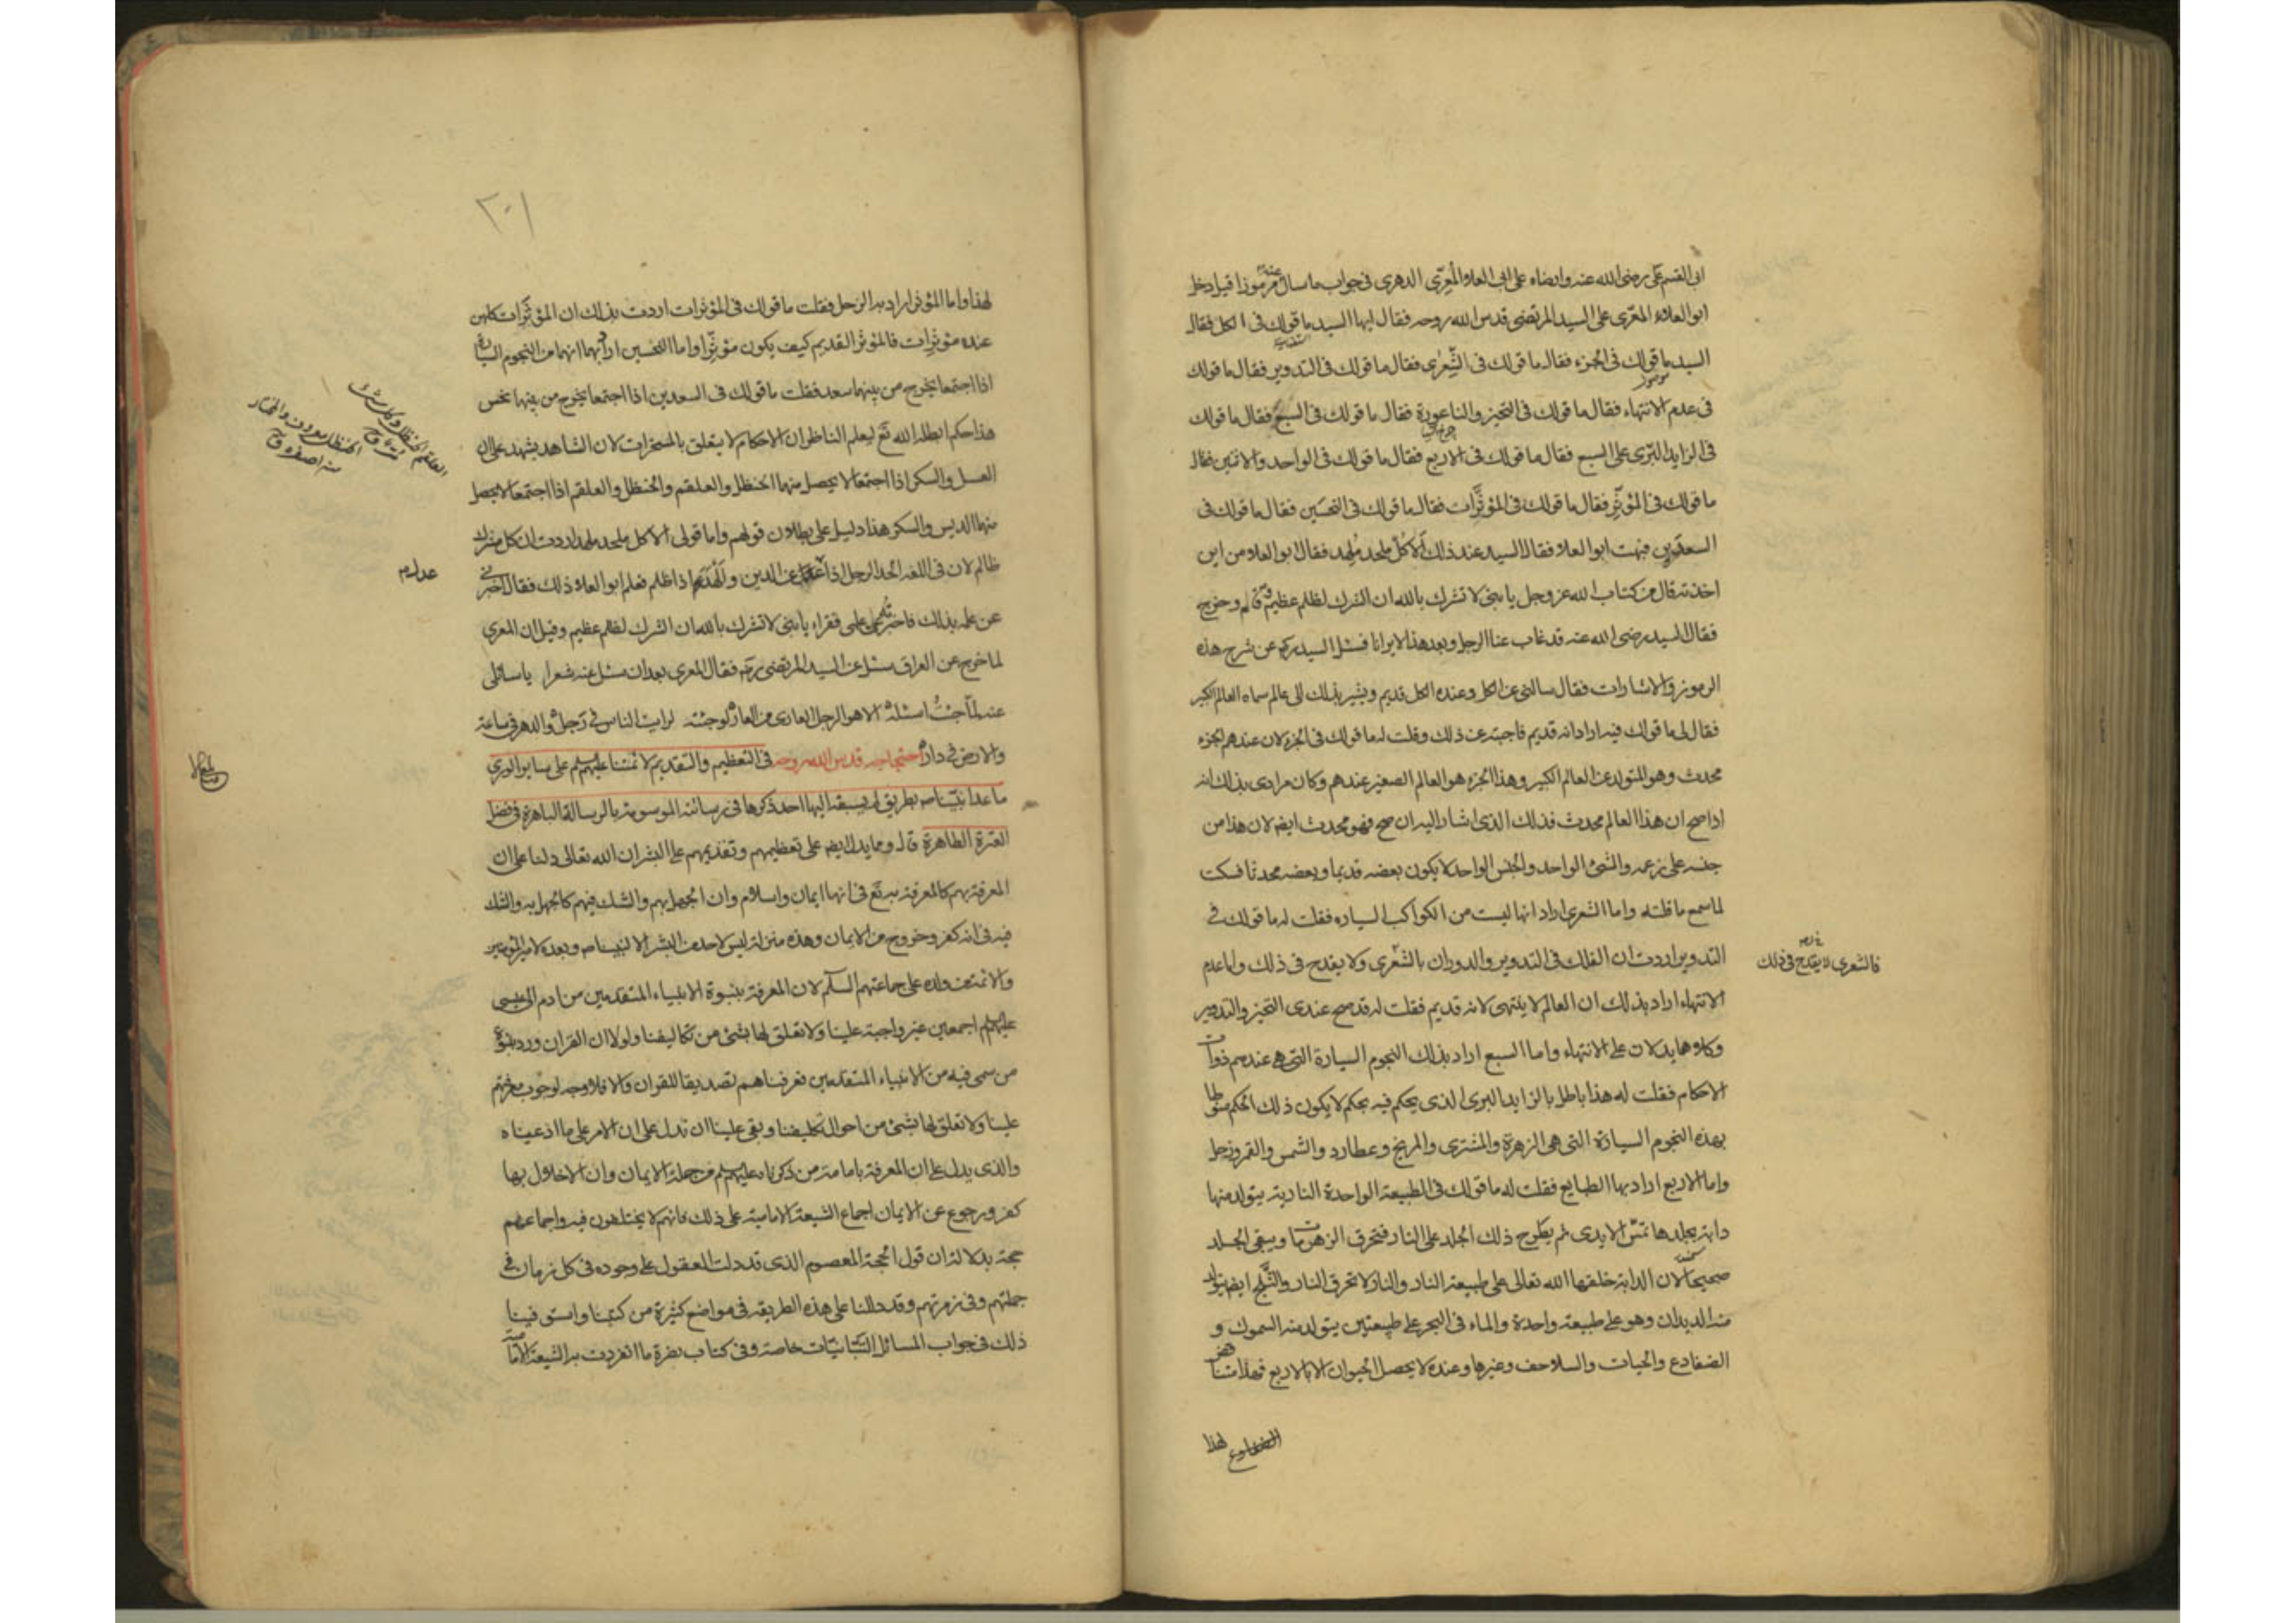 ابى القسم على رضى الله عنه وارضاه على ابى العلاء المعرّى الدهرى فى جواب ما سال عنه مرموزا قيل دخل
ابو العلاء المعرّى على السيد المرتضى قدس الله روحه فقال ايها السيد ما قولك فى الكل فقال
السيد ما قولك فى الجزء فقال ما قولك فى الشِّعرٰى فقال ما قولك فى التدوير فقال ما قولك
فى عدم الانتهاء فقال ما قولك فى التحيز والناعورة فقال ما قولك فى السبع فقال ما قولك
فى الزايد البَرّى على السبع فقال ما قولك فى الاربع فقال ما قولك فى الواحد والاثنين فقال
ما قولك فى المؤثِّر فقال ما قولك فى المؤثَّرات فقال ما قولك فى النحسَين فقال ما قولك فى
السعدَين فبهت ابو العلاء فقال السيد عند ذلك اَلا كلّ ملحد مُلهد فقال ابو العلاء من اين
اخذته قال من كتاب الله عز وجل يا بنى لا تشرك بالله ان الشرك لظلم عظيم قام وخرج
فقال السيد رضى الله عنه قد غاب عنا الرجل وبعد هذا لا يرانا فسئل السيد ره عن شرح هذه
الرموز والاشارات فقال سالنى عن الكل وعنده الكل قديم ويشير بذلك الى عالم سماه العالم الكبير
فقال لى ما قولك فيه اراد انه قديم فاجبته عن ذلك وقلت له ما قولك فى الجزء لان عندهم الجزء
محدث وهو المتولد عن العالم الكبير وهذا الجزء هو العالم الصغير عندهم وكان مرادى بذلك انه
اذا صح ان هذا العالم محدث فذلك الذى اشار اليه ان صح فهو محدث ايضا لان هذا من
جنسه على زعمه والشئ الواحد والجنس الواحد لا يكون بعضه قديما وبعضه محدثا فسكت
لما سمع ما قلته واما الشعرى اراد انها ليست من الكواكب السياره فقلت له ما قولك فى
التدوير اردت ان الفلك فى التدوير والدوران بالشِّعرى ولا يقدح فى ذلك واما عدم
فالشعرى لا يقدح فى ذلك
الانتهاء اراد بذلك ان العالم لا ينتهى لانه قديم فقلت له قد صح عندى التحيز والتدوير
وكلاهما يدلان على الانتهاء واما السبع اراد بذلك النجوم السيارة التى هى عندهم ذوات
الاحكام فقلت له هذا باطل بالزايد البرى الذى يحكم فيه بحكم لا يكون ذلك الحكم منوطا
بهذه النجوم السيارة التى هى الزهرة والمشترى والمريخ وعطارد والشمس والقمر وزحل
واما الاربع اراد بها الطبايع فقلت له ما قولك فى الطبيعة الواحدة النارية يتولد منها
دابة بجلدها تمسّ الايدى ثم يطرح ذلك الجلد على النار فتحرق الزهومات ويبقى الجلد
صحيحا لان الدابة خلقها الله تعالى على طبيعة النار والنار لا تحرق النار والثَّلج ايضا يتولد
منه الديدان وهو على طبيعة واحدة والماء فى البحر على طبيعتين يتولد منه السموك و
الضفادع والحيات والسلاحف وغيرها وعنده لا يحصل الحيوان الا بالاربع فهذا مناقض
لهذا
٢٠١
لهذا واما المؤثر اراد به الزحل فقلت ما قولك فى المؤثرات اردت بذلك ان المؤثَّرات كلهن
عنده مؤثِّرات فالمؤثر القديم كيف يكون مؤثِّرا واما النحسين اراد بهما انهما من النجوم السيارة
اذا اجتمعا يخرج من بينهما سعد فقلت ما قولك فى السعدين اذا اجتمعا يخرج من بينهما نحس
هذا حكم ابطله الله تع ليعلم الناظر ان الاحكام لا يتعلق بالمسخرات لان الشاهد يشهد على ان
العسل والسكر اذا اجتمعا لا يحصل منهما الحنظل والعلقم والحنظل والعلقم اذا اجتمعا لا يحصل
منهما الدبس والسكر هذا دليل على بطلان قولهم واما قولى الا كل ملحد ملهد اردت ان كل مشرك
ظالم لان فى اللغة الحد الرجل اذا عدل عن الدين والهد اذا ظلم فعلم ابو العلاء ذلك فقال اخبرنى
عدل م
عن علمه بذلك فاخبرتُهم على فقراء يا بنى لا تشرك بالله ان الشرك لظلم عظيم وقيل ان المعرى
لما خرج عن العراق سئل عن السيد المرتضى ره فقال المعرى بعد ان سئل عنه شعرا يا سائلى
عنه لمّا جئتُ اسئلهُ الا هو الرجل العارى من العار لو جئته لرايت الناس فى رَجل والدهر فى ساعة
والارض فى دار احتجاجه قدس الله روحه فى التعظيم والتقديم لائمتنا عليهم السلم على ساير الورى
ما عدا نبيّنا ص بطريق لم يسبقه اليها احد ذكرها فى رسالته الموسومة بالرسالة الباهرة فى فضل
العترة الطاهرة قال ومما يدل ايضا على تعظيمهم وتقديمهم على البشر ان الله تعالى دلنا على ان
المعرفة بهم كالمعرفة به تع فى انها ايمان واسلام وان الجهل بهم والشك فيهم كالجهل به والشك
فيه فى انه كفر وخروج من الايمان وهذه منزلة ليس لاحد من البشر الا لنبينا ص وبعده لامير المؤمنين
والائمة من ولده على جماعتهم السلم لان المعرفة بنبوة الانبياء المتقدمين من ادم الى عيسى
عليهم السلم اجمعين غير واجبة علينا ولا تعلق لها بشئ من تكاليفنا ولولا ان القران ورد بنبوة
من سمى فيه من الانبياء المتقدمين فعرفناهم تصديقا للقران والا فلا وجه لوجوب معرفتهم
علينا ولا تعلق لها بشئ من احوال تكليفنا وبقى علينا ان ندل على ان الامر على ما ادعيناه
والذى يدل على ان المعرفة بامامة من ذكرناه عليهم السلم من جملة الايمان وان الاخلال بها
كفر ورجوع عن الايمان اجماع الشيعة الامامية على ذلك فانهم لا يختلفون فيه واجماعهم
حجة بدلالة ان قول الحجة المعصوم الذى قد دلت العقول على وجوده فى كل زمان فى
جملتهم وفى زمرتهم وقد دللنا على هذه الطريقة فى مواضع كثيرة من كتبنا واستوفينا
ذلك فى جواب المسائل التبّانيّات خاصة وفى كتاب نصرة ما انفردت به الشيعة الامامية